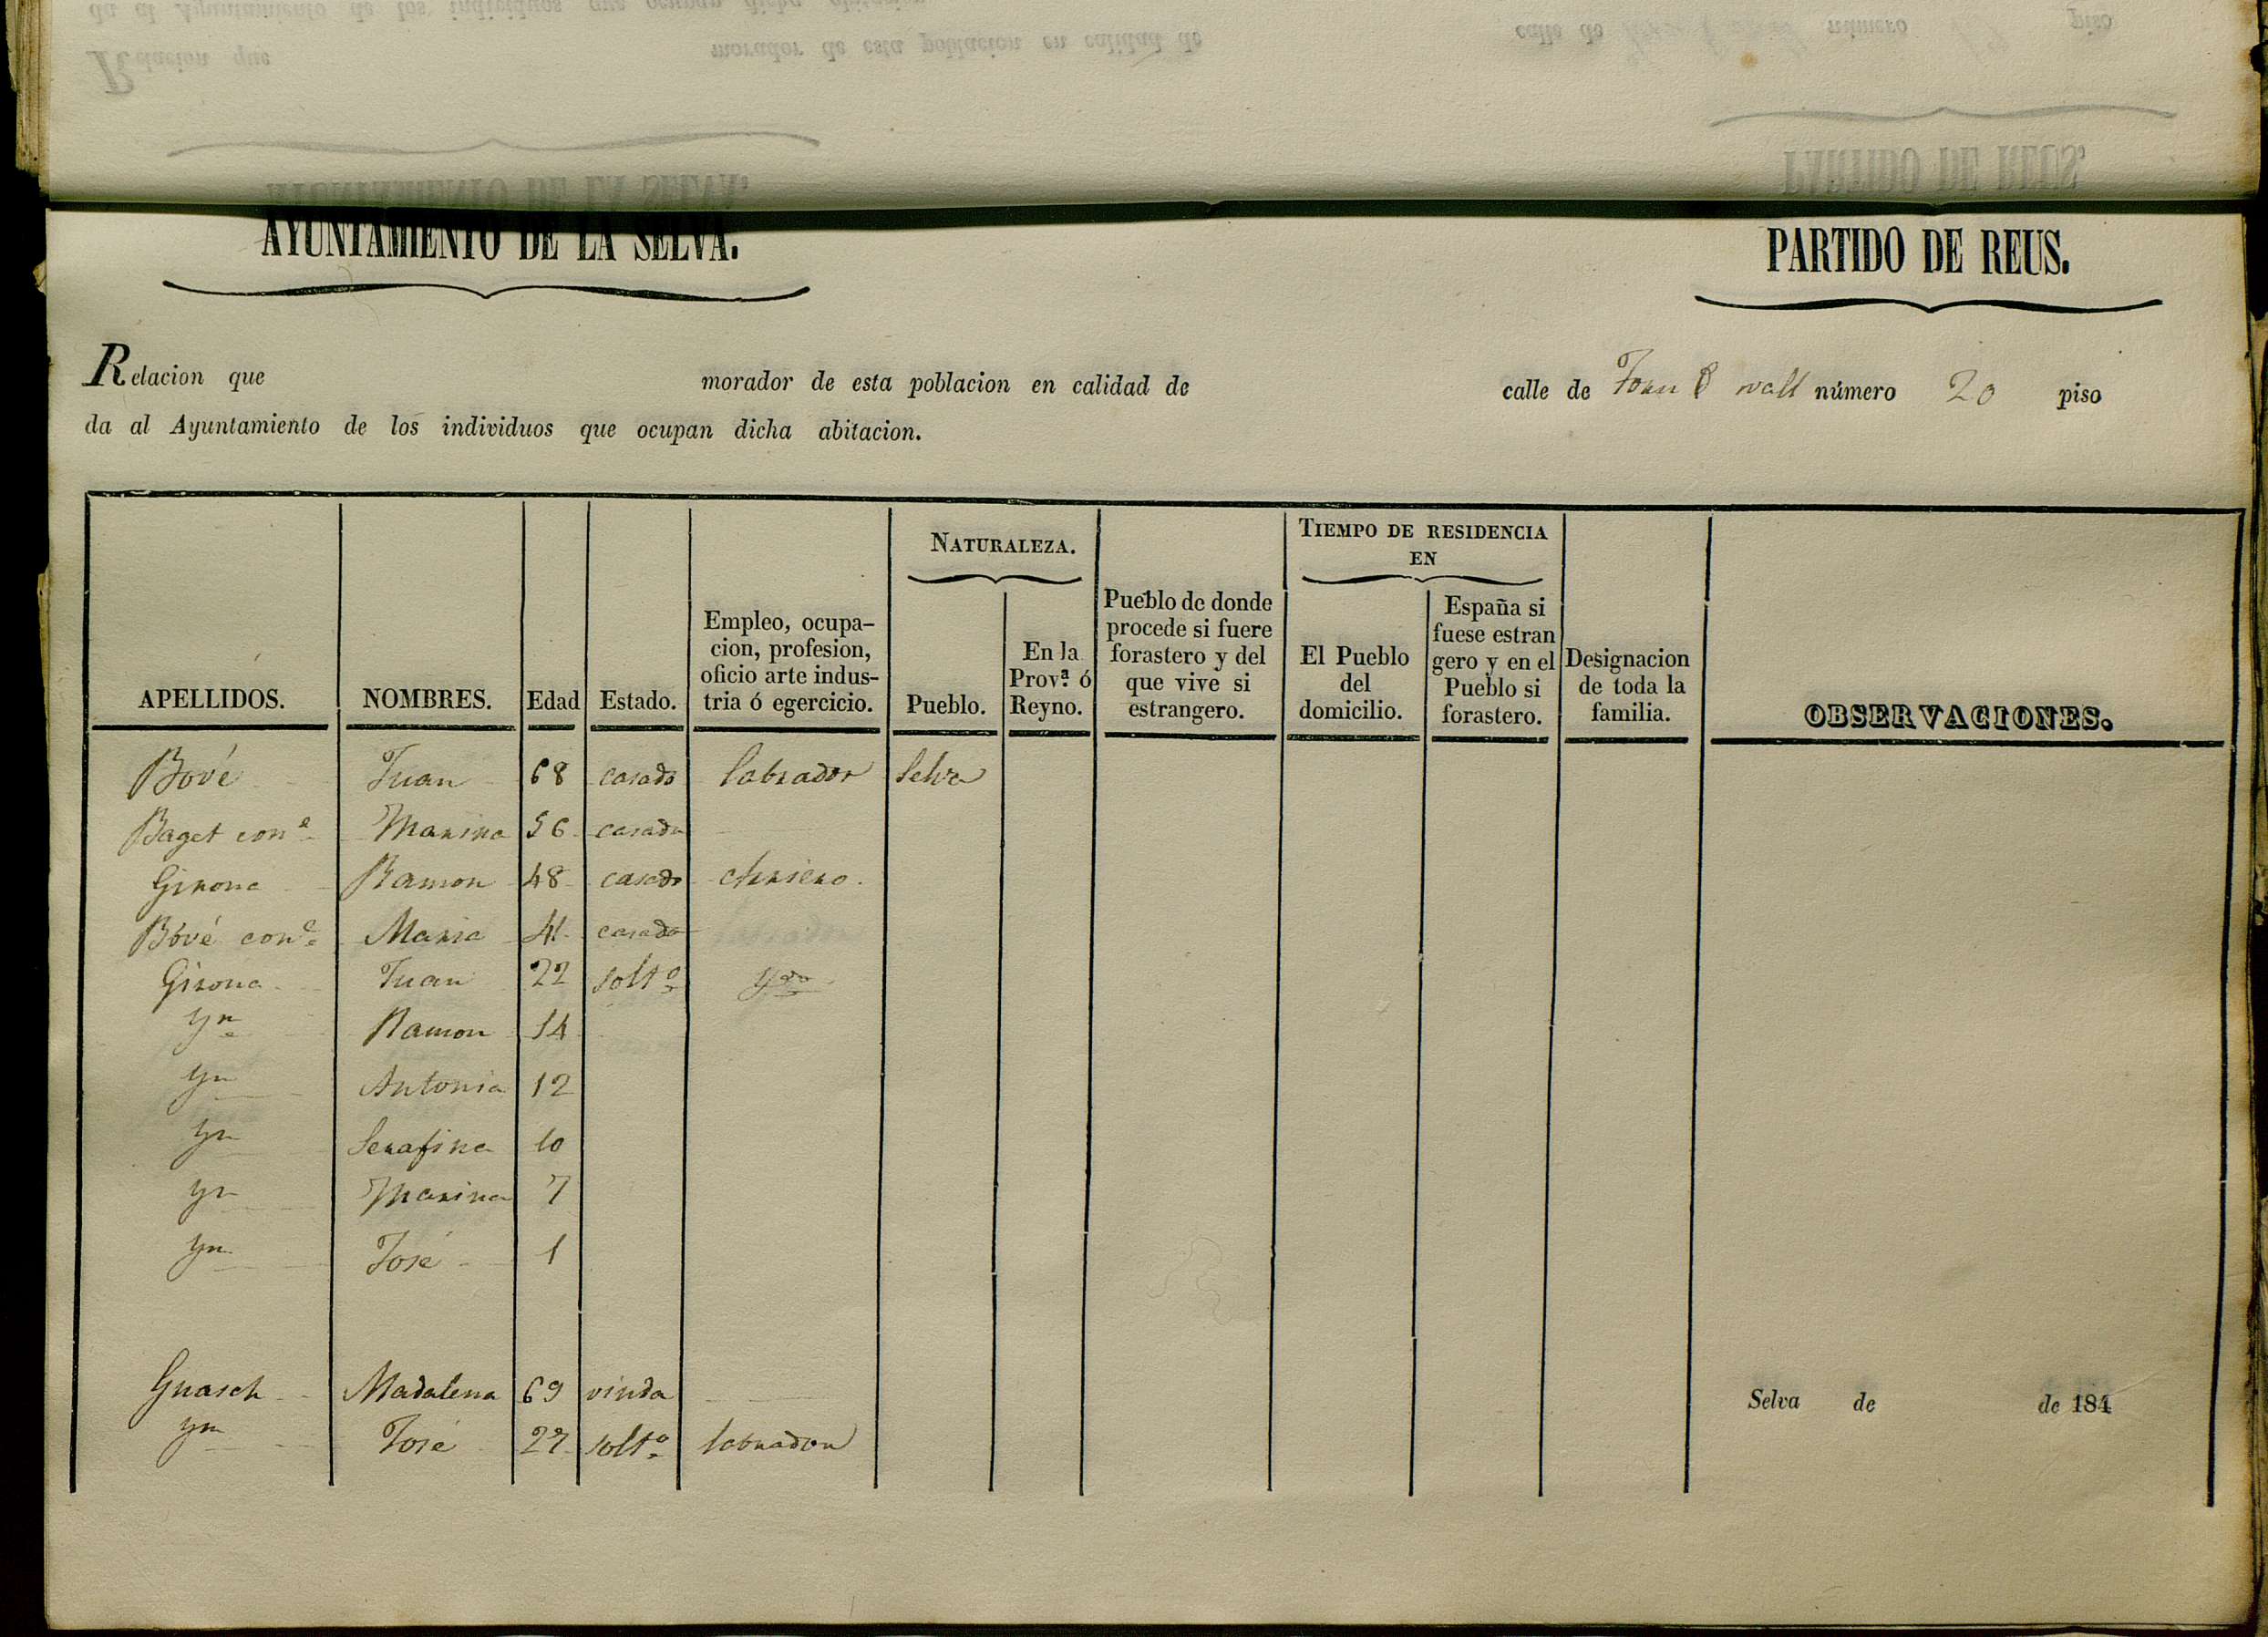 AYUNTAMIENTO DE LA SELVA.
PARTIDO DE REUS.
Relacion que morador de esta poblacion en calidad de calle de número 20 piso
da al Ayuntamiento de los individuos que ocupan dicha abitacion.
APELLIDOS. NOMBRES. Edad Estado. Empleo, ocupa-cion, profesion, oficio arte indus-tria ó egercicio. NATURALEZA. Pueblo. En la Prov.ª ó Reyno. Pueblo de donde procede si fuere forastero y del que vive si estrangero. TIEMPO DE RESIDENCIA EN El Pueblo del domicilio. España si fuese estran gero y en el Pueblo si forastero. Designacion de toda la familia. OBSERVACIONES.
Bové Juan 68 casado labrador Selva
Baget con.e Marina 56 casada
Girona Ramon 48 casado
Bové con.e Maria 41 casada
Girona Juan 22 solt.o
Yn Ramon 14
Yn Antonia 12
Yn Serafina 10
Yn Marina 7
Yn José 1
Guasch Madalena 69 viuda
Yn José 27 solt.o labrador
Selva de de 184